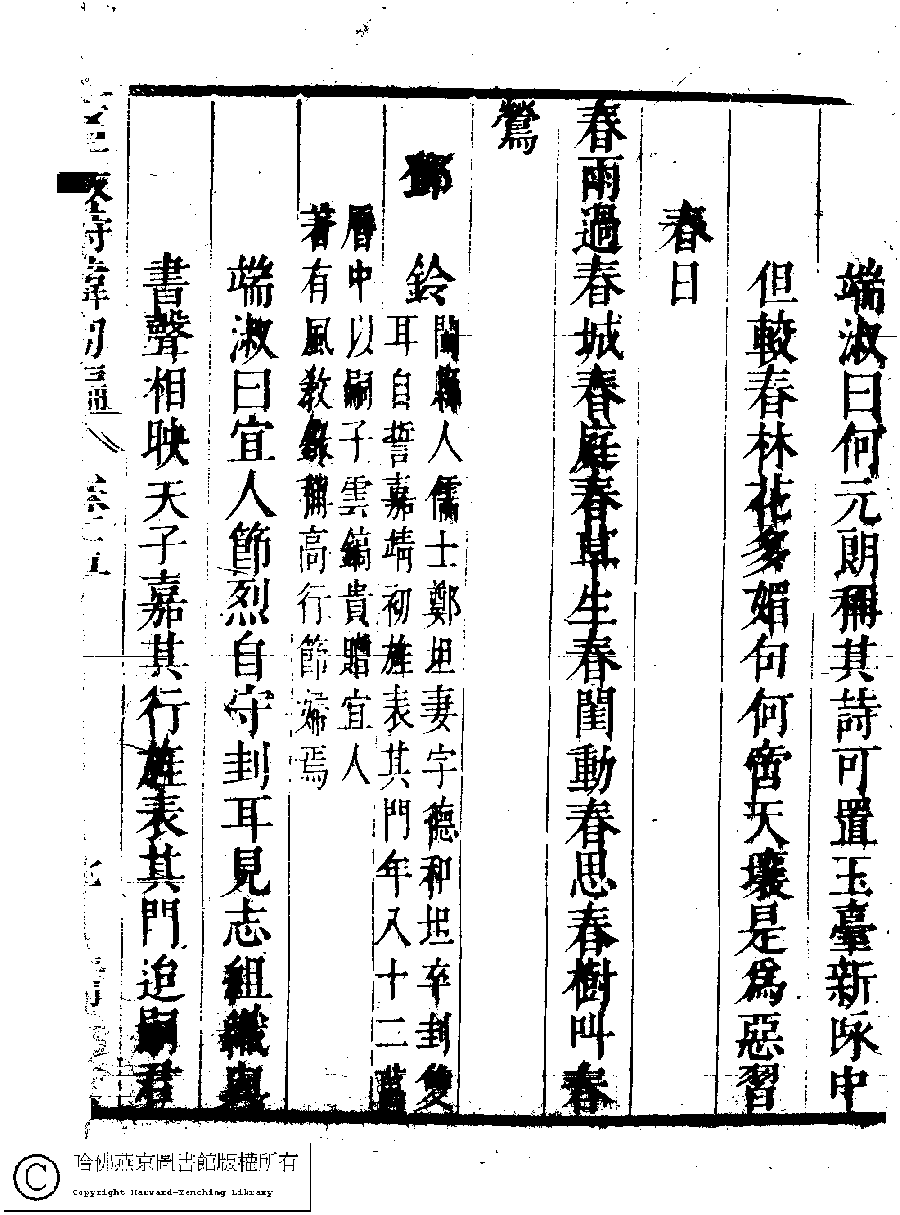 端淑曰何元朗稱其詩可置玉臺新咏中
但較春林花多媚句何啻天壤是爲惡習
春日
春雨過春城春庭春草生春閨動春思春樹叫春
鶯
鄭鈴
閩縣人儒士鄭坦妻字德和坦卒刲雙
耳自誓嘉靖初旌表其門年八十二萬
曆中以嗣子雲鎬貴贈宜人
著有風教錄稱高行節婦焉
端淑曰宜人節烈自守刲耳見志組織與
書聲相映天子嘉其行旌表其門迨嗣君
詩緯初編
哈佛燕京圖書館版權所有
Copyright Harvard-Yenching Library